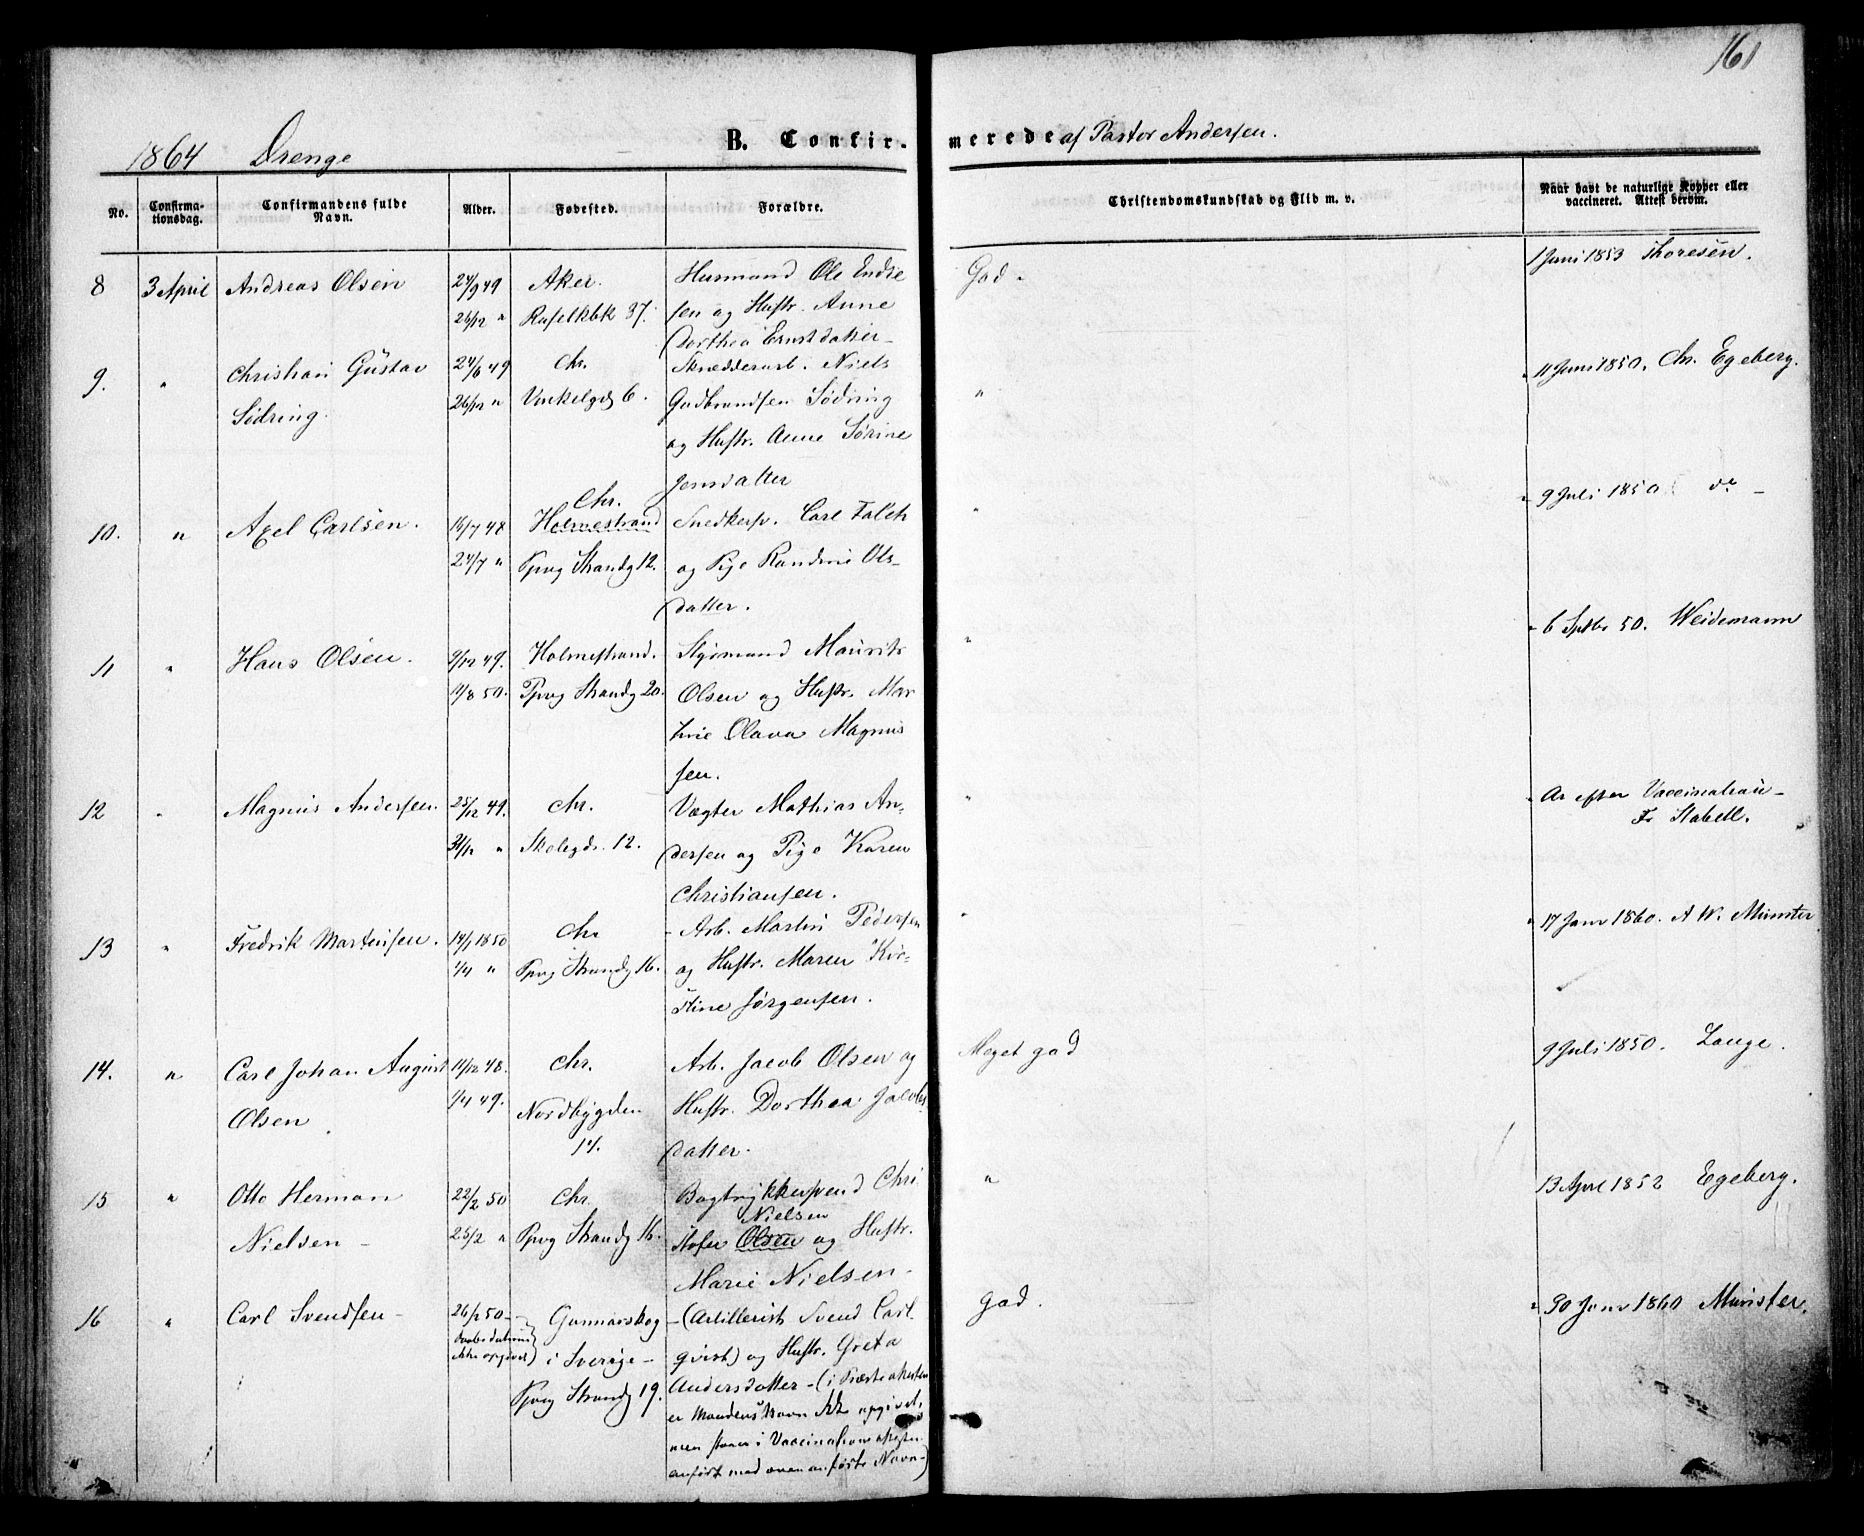 161
1864 Drenge B. Confirmerede af Pastor Andersen.
No. Confirmationsdag. Confirmandens fulde Navn. Alder. Fødested. Forældre. Christendomskundskab og Flid m. v. Naar havt de naturlige Kopper eller vaccineret. Attest derom.
8 3 April Andreas Olsen 24/9 49 Aker. Husmand Ole Endre God - 1 Juni 1853 Thoresen.
26/12 " 37. sen og Hustr. Anne
Dorthea Ernstdatter -
9. " Christian Gustav 24/6 49 Chr. Skrædderarb. Niels " " 11 Juni 1850. Chr. Egeberg.
Södring. 26/12 " Vinkelgd 6. Gudbrandsen Södring
og Hustr. Anne Sörine
Jensdatter
10. " Axel Carlsen. 16/7 48 Chr. Holmestrand Snedkersv. Carl Falch " " 9 Juli 1850 do -
24/7 " Pjpvg Strandg 12. og Pige Randine Ols-
datter.
11 " Hans Olsen. 9/12 49. Holmestrand. Styrmand Maurits " " 6 Septbr 50. Weidemann
11/8 50. Pjpvg Strandg 20. Olsen og Hustr. Mar
thie Olava Magnus
sen.
12 " Magnus Andersen. 25/12 49. Chr. Vægter Mathias An- " " Ar efter Vaccination -
31/12 " Skolegd. 12. dersen og Pige Karen Fr Stabell.
Christiansen.
13 " Fredrik Martinsen. 14/1 1850 Chr - Arb. Martin Pedersen " " 17 Janr 1860. A W. Münster
1/4 " Pjpvg Strandg 16. og Hustr. Maren Kir-
stine Jörgensen.
14. " Carl Johan August 11/12 48. Chr. Arb. Jacob Olsen og Meget god 9 Juli 1850. Lange.
Olsen 1/4 49. Nordbygden Hustr. Dorthea Jacobs
14. datter.
15 " Otto Herman 22/2 50 Chr. Bogtrykkersvend Chri " 13 Apr 1852 Egeberg.
Nielsen - 25/2 " Pjpvg Strandg 16. stofer Olsen Nielsen og Hustr.
Marie Nielsen -
16 " Carl Svendsen - 26/2 50 - Gunnarskog - (Artillerist Svend Carl God. " 30 Janr 1860 Münster.
(Daabsdatum i Sverige - qvist) og Hustr. Greta
ikke opgivet) Pjpvg Strandg 19. Andersdatter - (i Præsteattesten
er Mandens Navn ikke opgivet,
men staaer i Vaccinationsattesten
anført med ovenanførte Navn -)